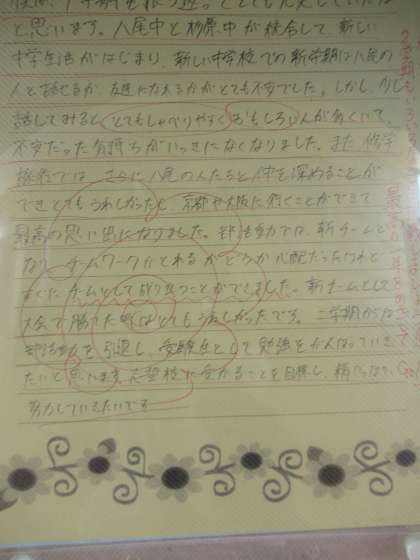 と思います。八尾中と杉原中が統合して、新しい
中学生活がはじまり、新しい中学校での新学期は八尾の
人と話せるか、友達になれるかがとても不安でした。しかし、少し
話してみると、とてもしゃべりやすくおもしろい人が多くいて、
不安だった気持ちがいっきになくなりました。また、修学
旅行では、さらに八尾の人たちと仲を深めることが
できとてもうれしかったし、京都や大阪に行くことができて
最高の思い出になりました。部活動では、新チームと
なり、チームワークがとれるかどうか心配だったけれど
すぐにチームとして成り立つことができました。新チームとして
大会で勝てた時はとてもうれしかったです。二学期からは
部活動を引退し、受験生として勉強をがんばっていき
たいと思います。志望校に受かることを目標に、精一杯
努力していきたいです